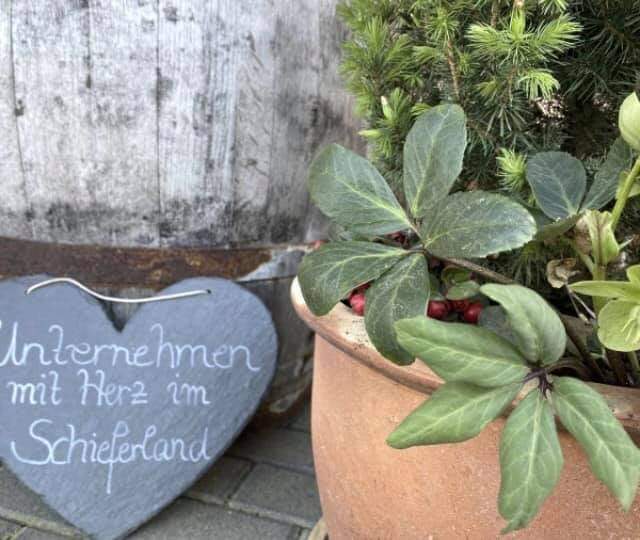 Unternehmen
mit Herz im
Schieferland